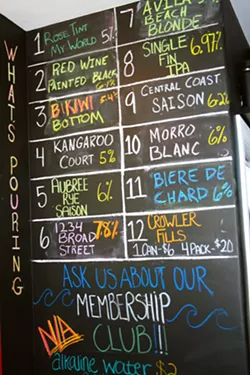 WHATS POURING
1 ROSE TINT
MY WORLD 5%
2 RED WINE
PAINTED BLACK
3 BIKINI 5.4%
BOTTOM
4 KANGAROO
COURT 5%
5 AUBREE
RYE 6%
SAISON
6 1234 7.8%
BROAD
STREET
7 AVILA
BEACH
BLONDE
8 SINGLE 6.97%
FIN
IPA
9 CENTRAL COAST
SAISON 6.2%
10 MORRO
BLANC 6%
11 BIERE DE
CHARD 6%
12 CROWLER
FILLS
1 CAN-$6 4 PACK-$20
ASK US ABOUT OUR
MEMBERSHIP
CLUB!!!
N/A
alkaline water $2